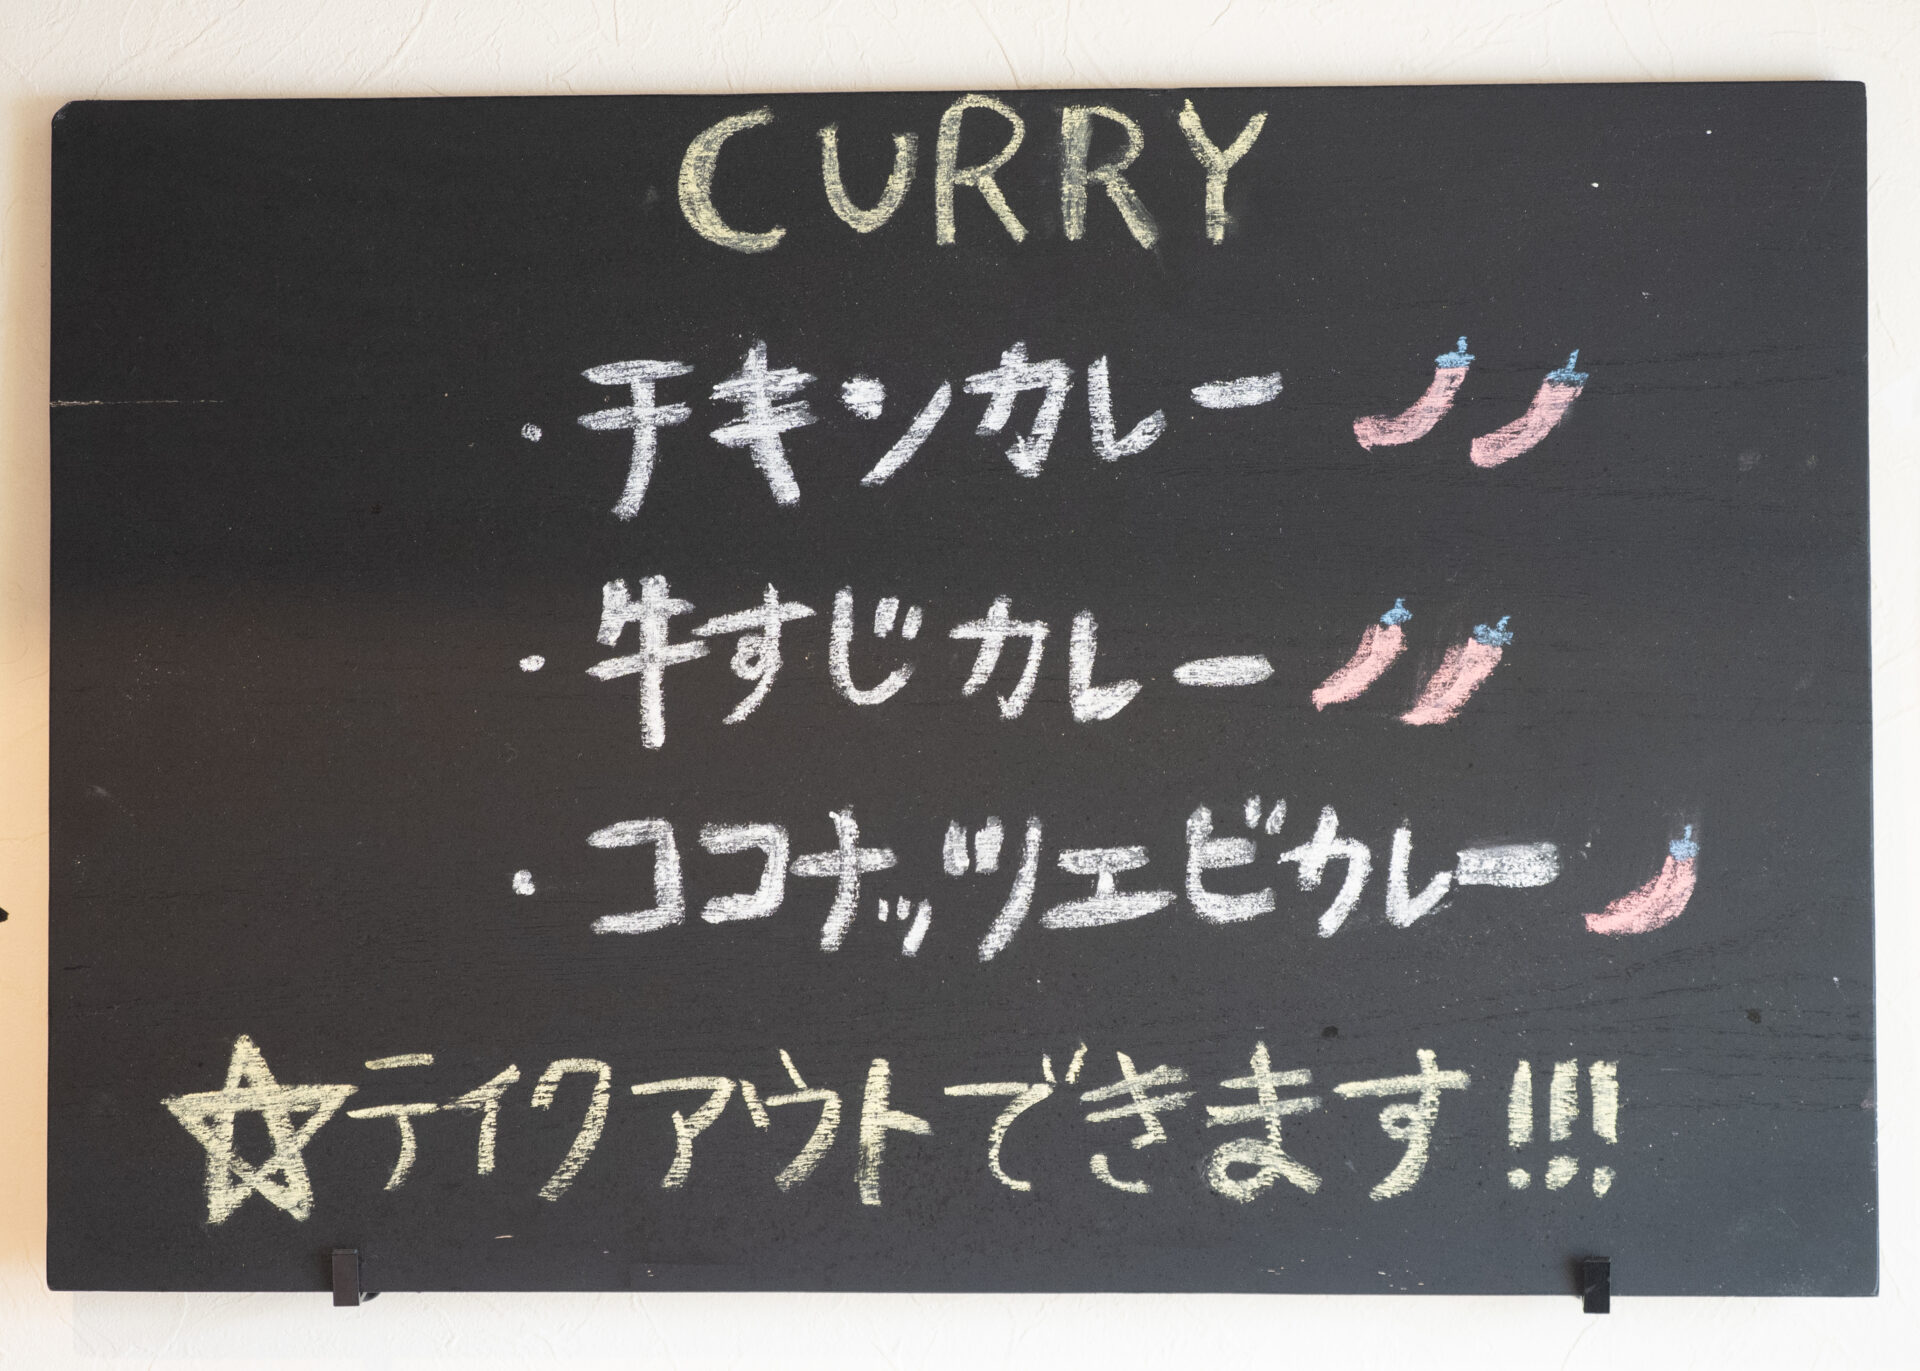 CURRY
・チキンカレー
・牛すじカレー
・ココナッツエビカレー
☆テイクアウトできます!!!